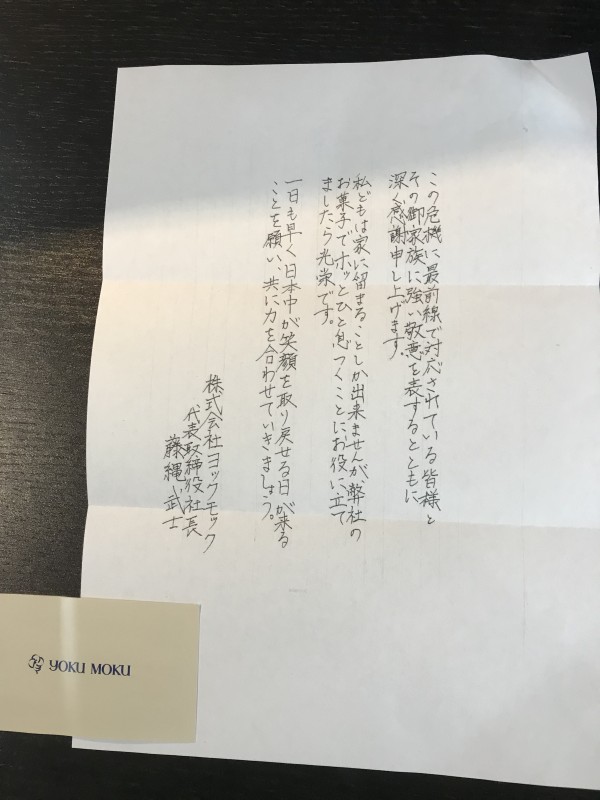 この危機に最前線で対応されている皆様と
その御家族に強い敬意を表するとともに
深く感謝申し上げます。
私どもは家に留まることしか出来ませんが弊社の
お菓子でホッとひと息つくことにお役に立て
ましたら光栄です。
一日も早く日本中が笑顔を取り戻せる日が来る
ことを願い、共に力を合わせていきましょう。
株式会社ヨックモック
代表取締役社長
藤縄武士
YOKU MOKU